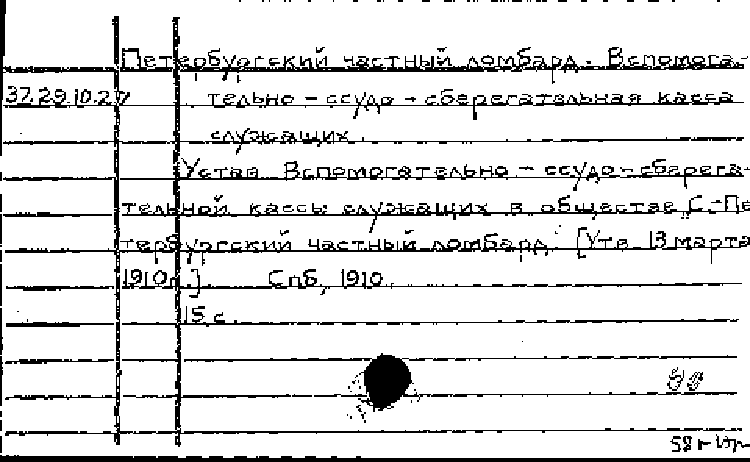 Петербургский частный ломбард. Вспомога-
37.29.10.27 тельно-ссудо-сберегательная касса
служащих.
Устав Вспомогательно-ссудо-сберега-
тельной кассы служащих в обществе С.-Пе
тербургский частный ломбард. [Утв. 13 марта
1910г.]. Спб, 1910.
15 с.